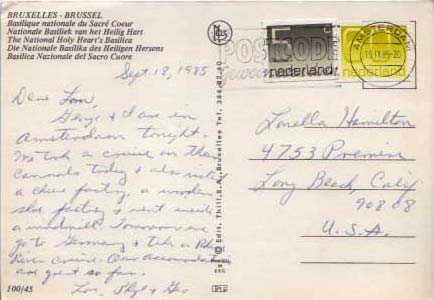 BRUXELLES - BRUSSEL
Basilique nationale du Sacré Coeur
Nationale Basiliek van het Heilig Hart
The National Holy Heart's Basilica
Die Nationale Basilika des Heiligen Hersens
Basilica Nazionale del Sacro Cuore
Sept 18, 1985
Dear
& I are in
Amsterdam tonight.
We took a cruise on the
cannals today & also visited
a chees factory, a wooden
shoe factory & went inside
a windmill. Tomorrow we
go to Germany & take a
River Cruise. Our
are great so far.
Love,
100/45
Edit. Thill, S.A., Bruxelles Tel. 344.92.40
POSTCODE
nederland
nederland
AMSTERDAM
19.IX.85-20
Hamilton
4753
Long Beach, Calif.
90808
U.S.A.